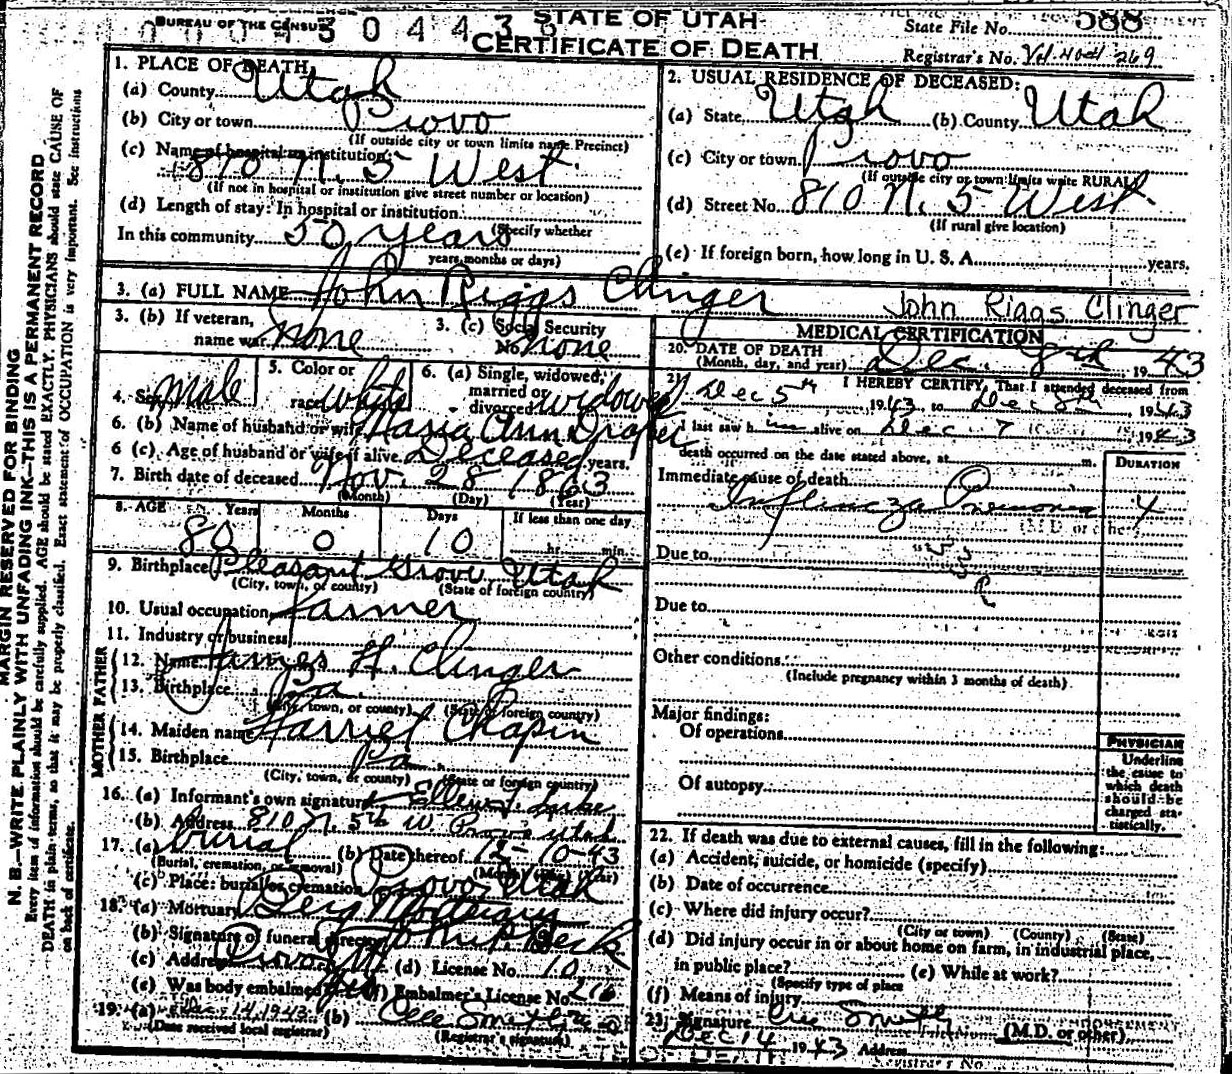 BUREAU OF THE CENSUS
STATE OF UTAH
CERTIFICATE OF DEATH
State File No. 588
Registrar's No. 269
MARGIN RESERVED FOR BINDING
N. B.—WRITE PLAINLY WITH UNFADING INK—THIS IS A PERMANENT RECORD
Every item of information should be carefully supplied. AGE should be stated EXACTLY. PHYSICIANS should state CAUSE OF
DEATH in plain terms, so that it may be properly classified. Exact statement of OCCUPATION is very important. See instructions
on back of certificate.
1. PLACE OF DEATH
(a) County Utah
(b) City or town Provo
(If outside city or town limits name Precinct)
(c) Name of hospital or institution:
810 N. 5 West.
(If not in hospital or institution give street number or location)
(d) Length of stay: In hospital or institution
(Specify whether
In this community 50 years
years, months or days)
2. USUAL RESIDENCE OF DECEASED:
(a) State Utah (b) County Utah
(c) City or town Provo
(If outside city or town limits write RURAL)
(d) Street No. 810 N. 5 West.
(If rural give location)
(e) If foreign born, how long in U. S. A. years.
3. (a) FULL NAME John Riggs Clinger John Riggs Clinger
3. (b) If veteran,
name war none
3. (c) Social Security
No. none
4. Sex male
5. Color or
race white
6. (a) Single, widowed,
married or
divorced widowed
6. (b) Name of husband or wife Maria Ann Draper
6 (c). Age of husband or wife if alive Deceased years.
7. Birth date of deceased Nov. 28 1863
(Month) (Day) (Year)
8. AGE Years Months Days If less than one day
80 0 10 hr. min.
9. Birthplace Pleasant Grove Utah
(City, town, or county) (State of foreign country)
10. Usual occupation farmer
11. Industry or business
FATHER
12. Name James H. Clinger
13. Birthplace Pa.
(City, town, or county) (State of foreign country)
MOTHER
14. Maiden name Harriet Chapin
15. Birthplace Pa.
(City, town, or county) (State or foreign country)
16. (a) Informant's own signature
(b) Address 810 N. 5th W. Provo Utah
17. (a) Burial (b) Date thereof 12-10-43
(Burial, cremation, or removal) (Month) (Day) (Year)
(c) Place: burial or cremation Provo, Utah
18. (a) Mortuary Berg Mortuary
(b) Signature of funeral director
(c) Address Provo (d) License No. 10
(e) Was body embalmed yes (f) Embalmer's License No. 216
19. (a) Dec. 14, 1943 (b)
(Date received local registrar) (Registrar's signature)
MEDICAL CERTIFICATION
20. DATE OF DEATH
(Month, day, and year) Dec. 8th 1943
21. I HEREBY CERTIFY, That I attended deceased from
Dec 5th 1943, to Dec 8th 1943
I last saw him alive on Dec 7 1943
death occurred on the date stated above, at m.
DURATION
Immediate cause of death
Influenza Pneumonia 4
Due to
Due to
Other conditions
(Include pregnancy within 3 months of death)
Major findings:
Of operations
Of autopsy
PHYSICIAN
Underline
the cause to
which death
should be
charged sta-
tistically.
22. If death was due to external causes, fill in the following:
(a) Accident, suicide, or homicide (specify)
(b) Date of occurrence
(c) Where did injury occur?
(City or town) (County) (State)
(d) Did injury occur in or about home on farm, in industrial place,
in public place? (e) While at work?
(Specify type of place
(f) Means of injury
23. Signature Smith (M.D. or other)
Dec 14 1943 Address
Registrar's No.